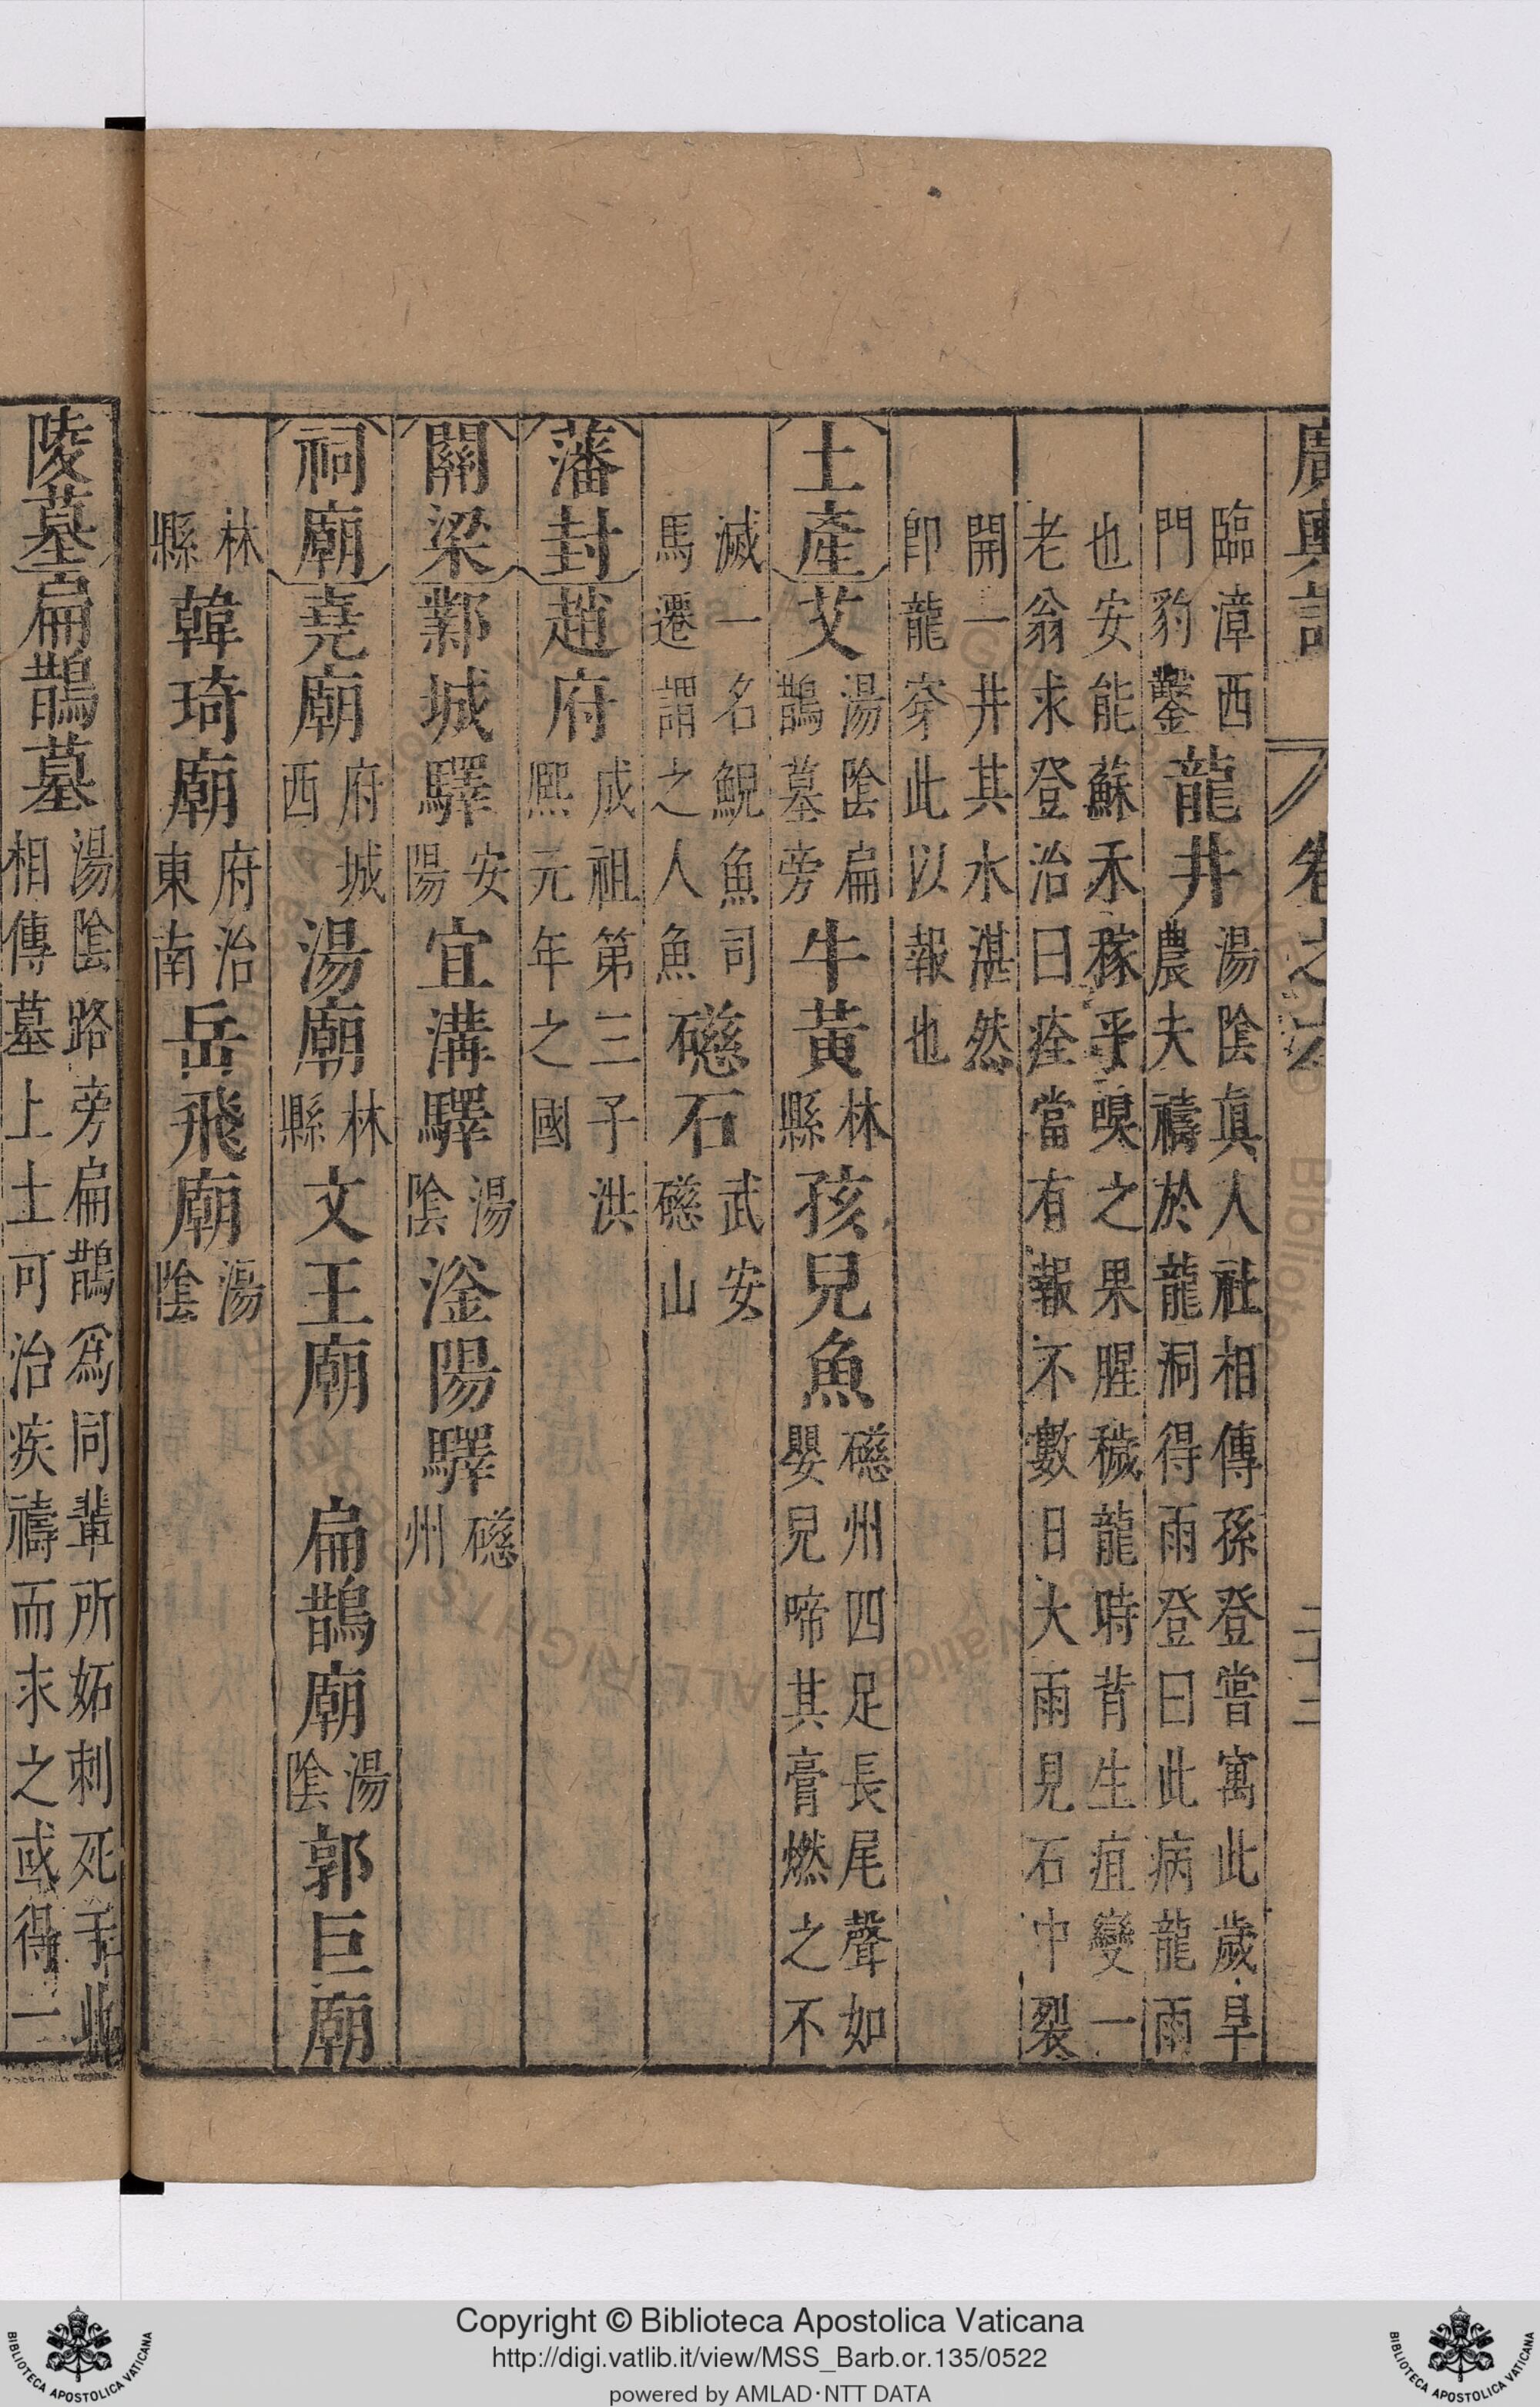 廣輿記 卷之六 二十二
臨漳西門豹鑿龍井湯陰真人社相傳孫登嘗寓此歲旱農夫禱於龍洞得雨登曰此病龍雨
也安能蘇禾稼乎嗅之果腥穢龍時背生疽變一老翁求登治曰痊當有報不數日大雨見石中裂
開一井其水湛然卽龍穿此以報也
土產艾湯陰扁鵲墓旁牛黃林縣孩兒魚磁州四足長尾聲如嬰兒啼其膏燃之不
滅一名鯢魚司馬遷謂之人魚磁石武安磁山
藩封趙府成祖第三子洪熙元年之國
關梁鄴城驛安陽宜溝驛湯陰滏陽驛磁州
祠廟堯廟府城西湯廟林縣文王廟 扁鵲廟湯陰郭巨廟
林縣韓琦廟府治東南岳飛廟湯陰
陵墓扁鵲墓湯陰路旁扁鵲爲同輩所妬刺死于此相傳墓上土可治疾禱而求之或得一
Copyright © Biblioteca Apostolica Vaticana
http://digi.vatlib.it/view/MSS_Barb.or.135/0522
powered by AMLAD·NTT DATA
BIBLIOTECA APOSTOLICA VATICANA
BIBLIOTECA APOSTOLICA VATICANA